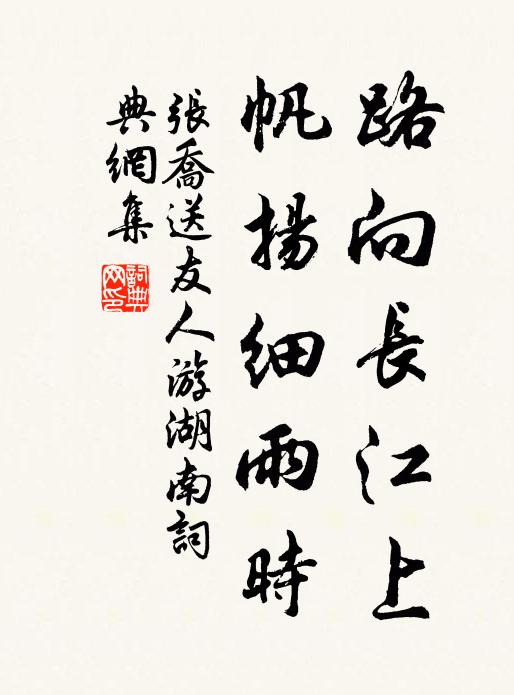 路向長江上
帆揚細雨時
張喬送友人游湖南詞
典網集
詞典
网印